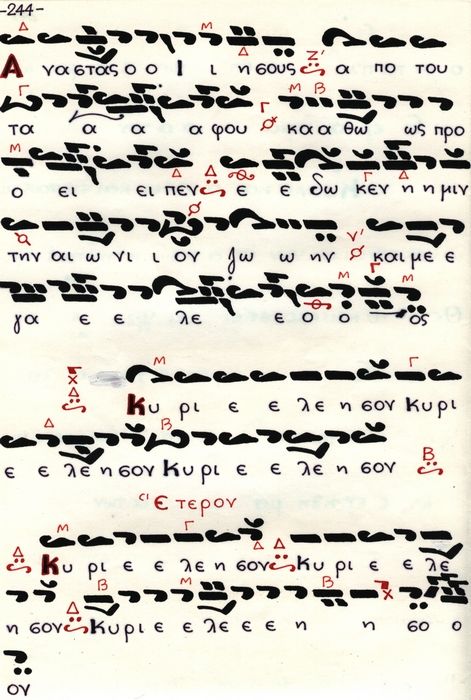 -244-
Α να στας ο ο Ι ι η σους α πο του
τα α α α φου κα α θω ως προ
ο ει ει πεν ε ε δω κεν η η μιν
την αι ω νι ι ον ζω ω ην και με ε
γα ε ε λε ε ε ο ο ος
Κυ ρι ε ε λε η σον Κυ ρι
ε ε λε η σον Κυ ρι ε ε λε η σον
Ετερον
Κυ ρι ε ε λε η σον Κυ ρι ε ε λε
η σον Κυ ρι ε ε λε ε ε η η σο ο
ον